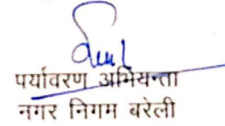 पर्यावरण अभियन्ता
नगर निगम बरेली